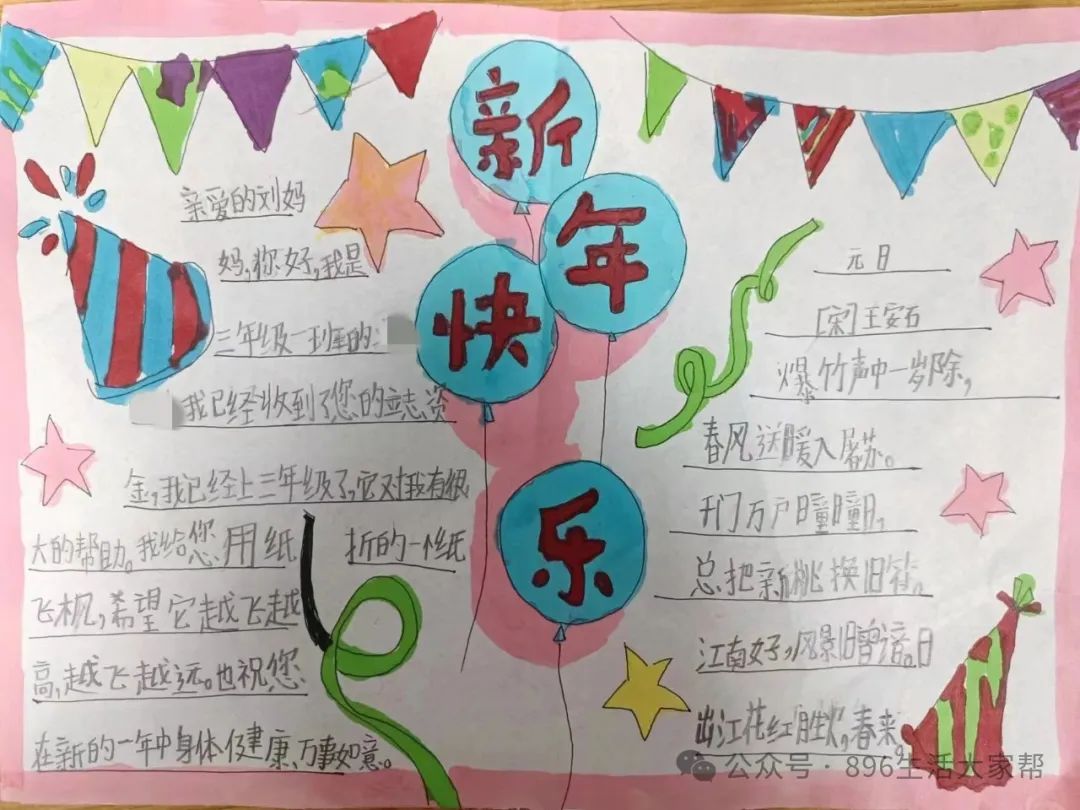 新年快乐
亲爱的刘妈
妈,你好,我是
三年级一班的
我已经收到了您的志资
金,我已经上三年级了,它对我有很
大的帮助。我给您用纸 折的一个纸
飞机,希望它越飞越
高,越飞越远。也祝您
在新的一年中身体健康、万事如意。
元日
[宋]王安石
爆竹声中一岁除,
春风送暖入屠苏。
千门万户曈曈日,
总把新桃换旧符。
江南好,风景旧曾谙。日
出江花红胜火,春来。
公众号·896生活大家帮